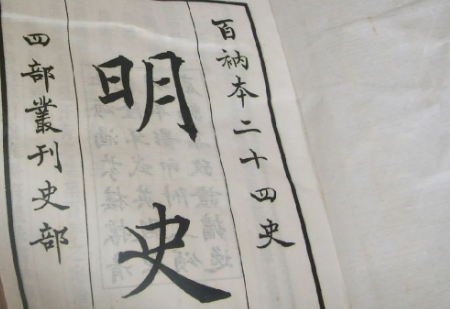 百衲本二十四史
明史
四部叢刊史部